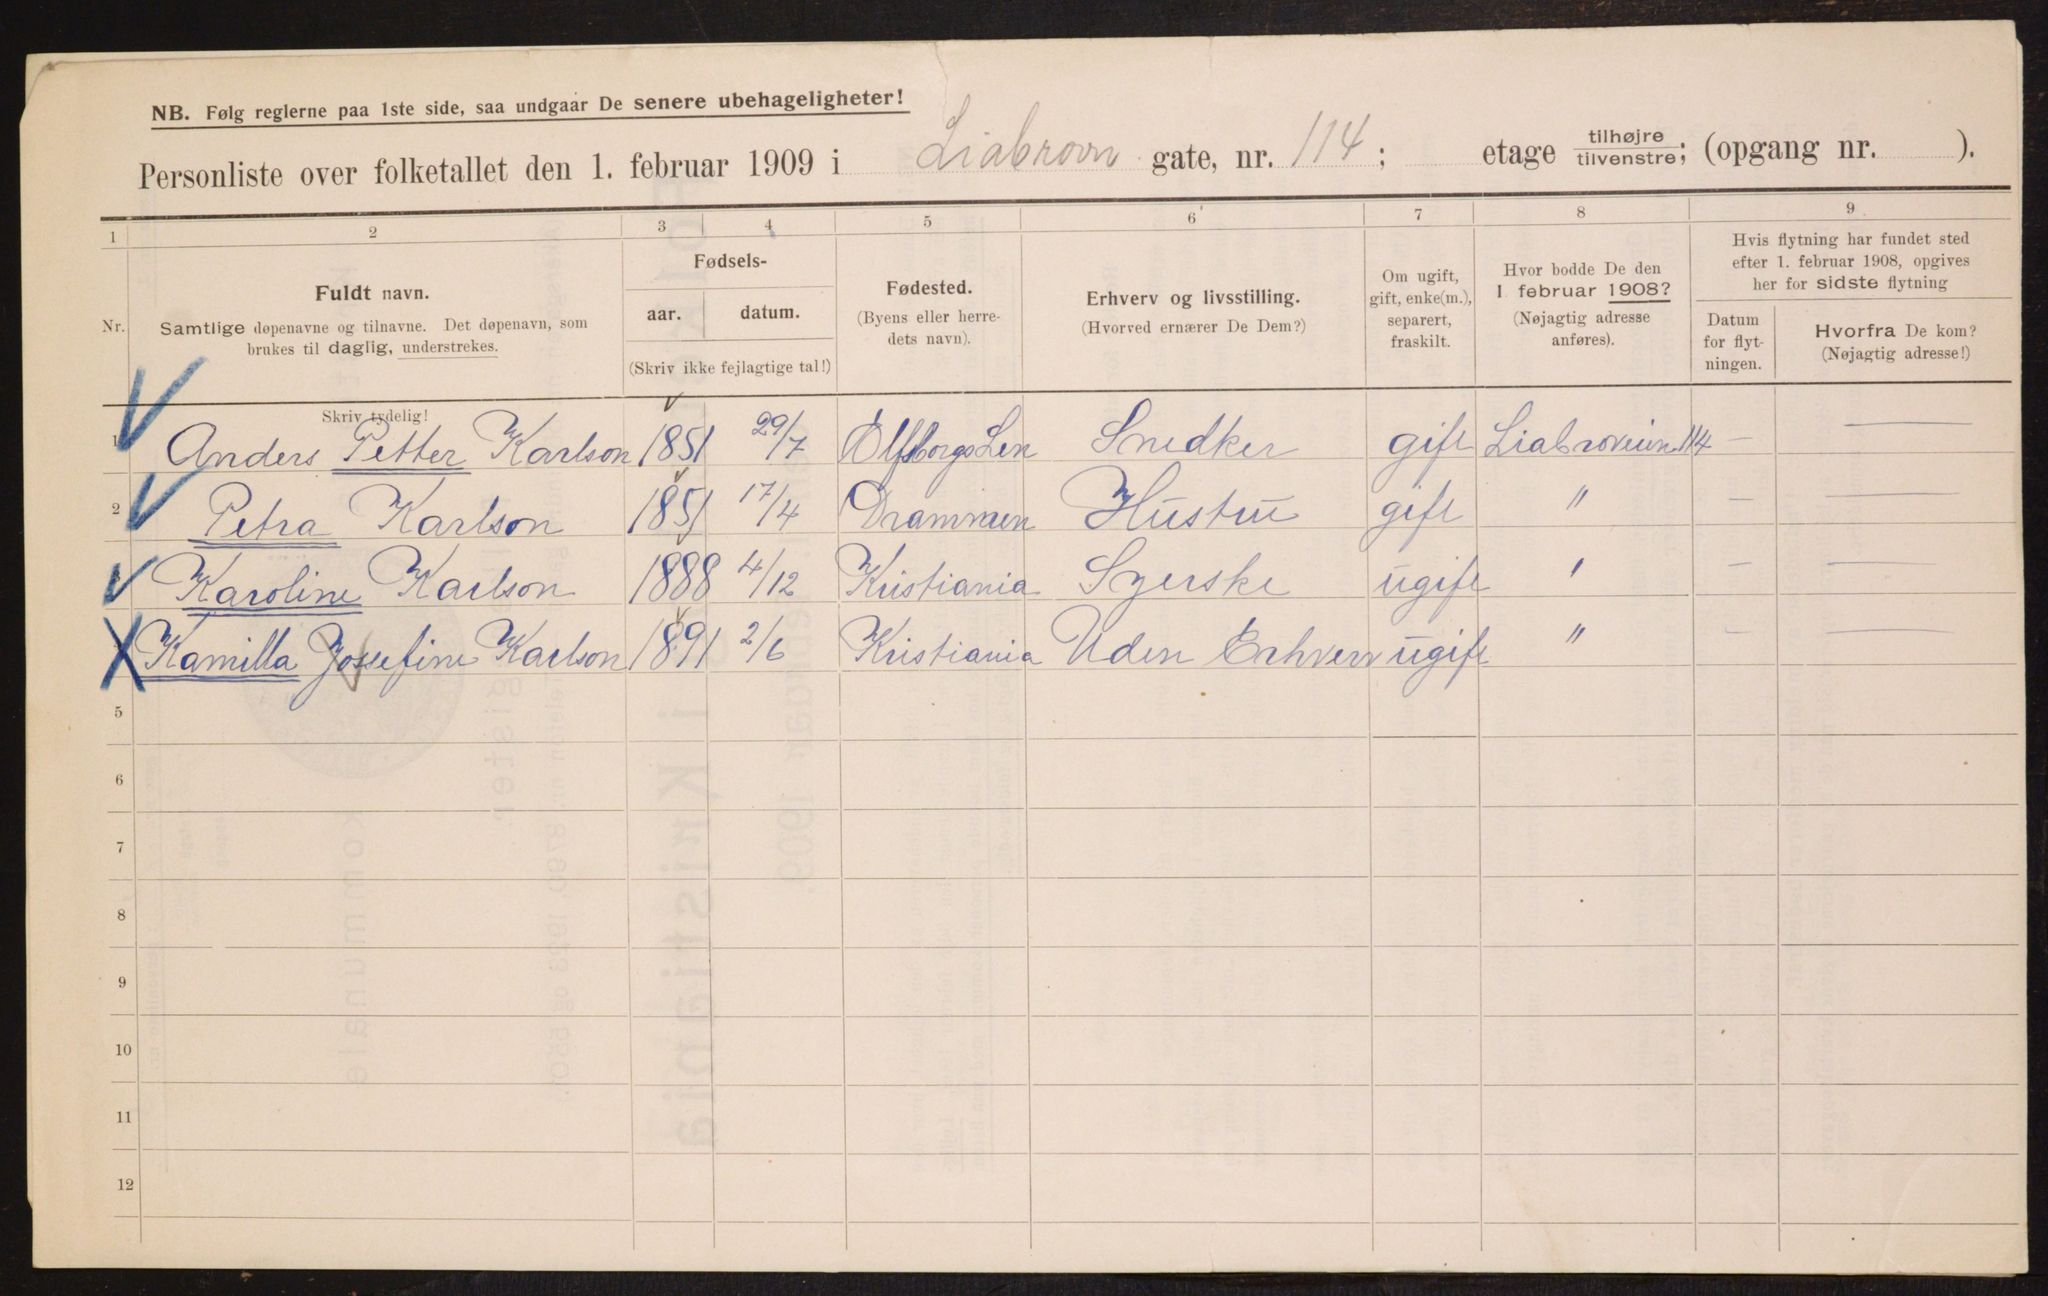 NB. Følg reglerne paa 1ste side, saa undgaar De senere ubehageligheter!
Personliste over folketallet den 1. februar 1909 i Liabrovn gate, nr. 114; etage tilhøjre/tilvenstre; (opgang nr. ).
1 2 3 4 5 6 7 8 9
Nr.
Fuldt navn.
Samtlige døpenavne og tilnavne. Det døpenavn, som
brukes til daglig, understrekes.
Skriv tydelig!
Fødsels-
aar. datum.
(Skriv ikke fejlagtige tal!)
Fødested.
(Byens eller herre-
dets navn).
Erhverv og livsstilling.
(Hvorved ernærer De Dem?)
Om ugift,
gift, enke(m.),
separert,
fraskilt.
Hvor bodde De den
1. februar 1908?
(Nøjagtig adresse
anføres).
Hvis flytning har fundet sted
efter 1. februar 1908, opgives
her for sidste flytning
Datum
for flyt-
ningen.
Hvorfra De kom?
(Nøjagtig adresse!)
1 Anders Petter Karlson 1851 29/7 Elfsborgs Len Snedker gift Liabroveien 114 — —
2 Petra Karlson 1851 17/4 Drammen Hustru gift " — —
Karoline Karlson 1888 4/12 Kristiania Syerske ugift " — —
Kamilla Jossefine Karlson 1891 2/6 Kristiania Uden Erhverv ugift " — —
5
6
7
8
9
10
11
12